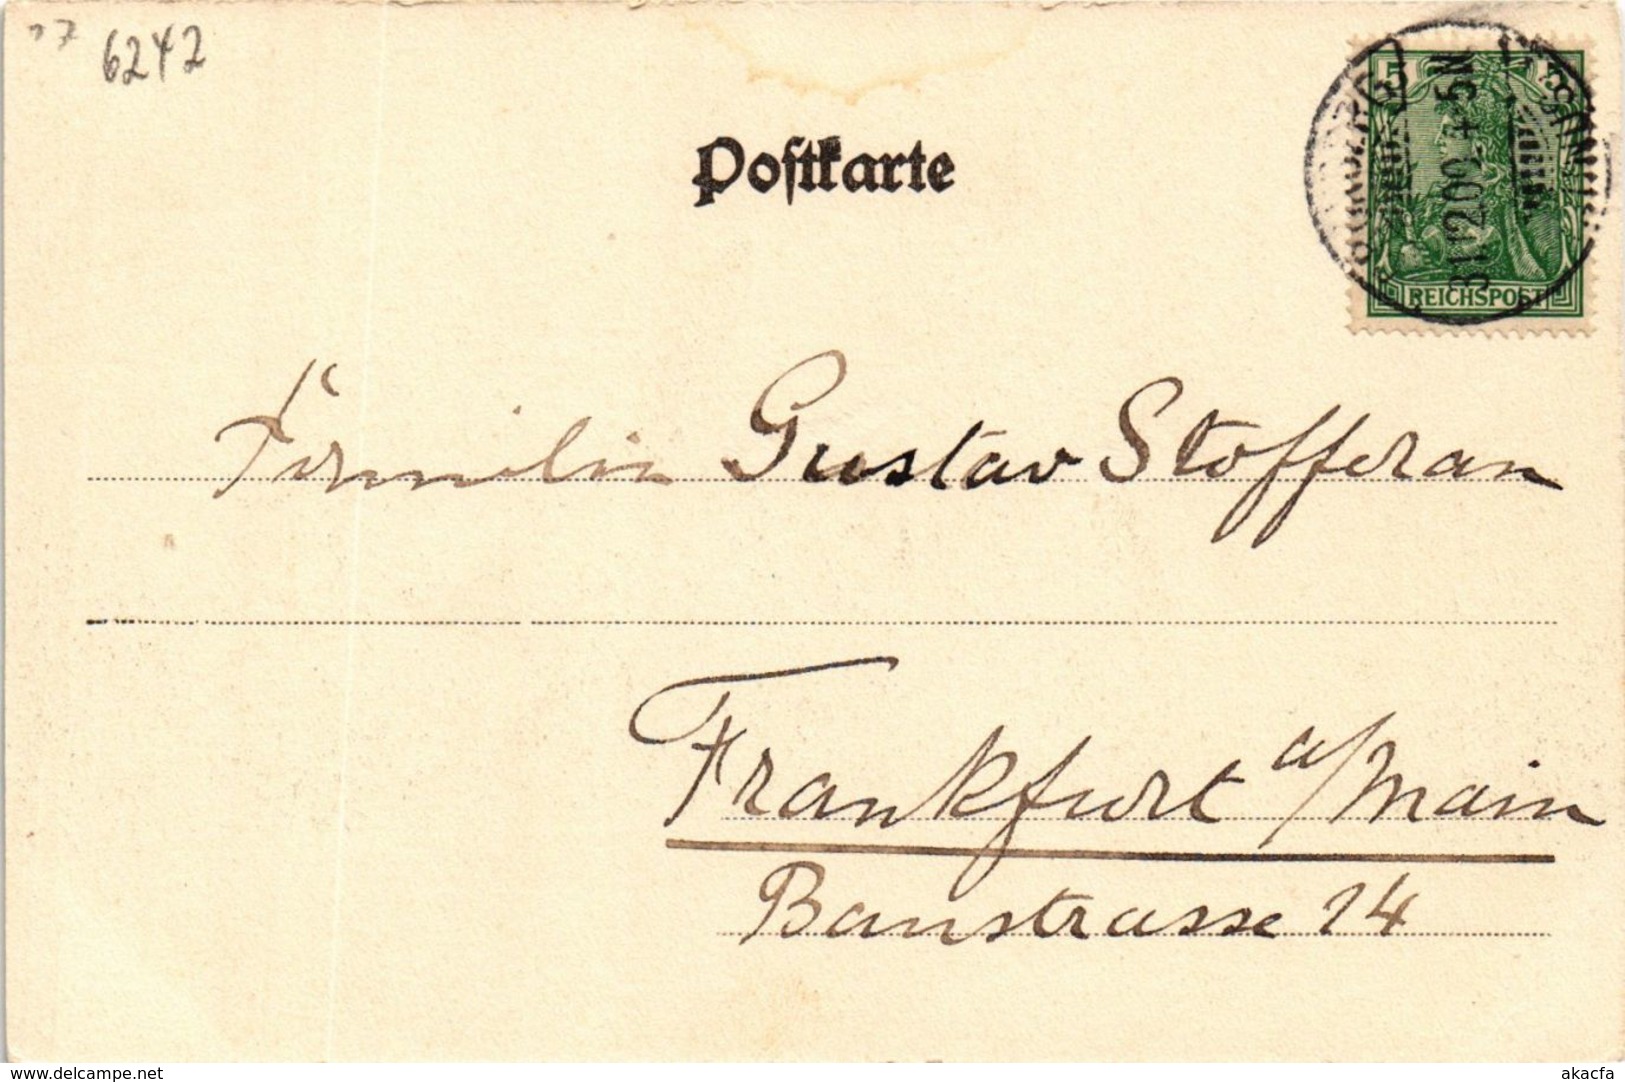 6242
Poſtkarte
5
31.12.00. 4-5N.
REICHSPOST
Familie Gustav Stofferan
Frankfurt a/Main
Baustrasse 14
delcampe.net
akacfa